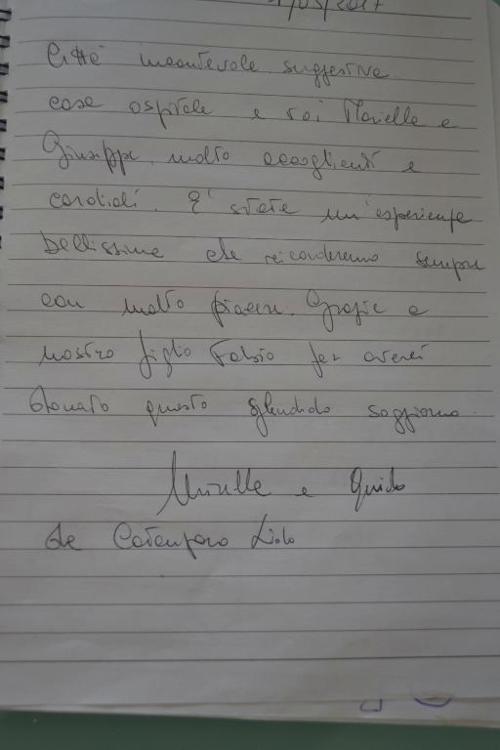 /05/2017
Città incantevole suggestiva
casa ospitale e voi Mariella e
Giuseppe molto accoglienti e
cordiali. E' stata un'esperienza
bellissima che ricorderemo sempre
con molto piacere. Grazie a
nostro figlio Fabio per averci
donato questo splendido soggiorno.
Mirella e Guido
da Catanzaro Lido